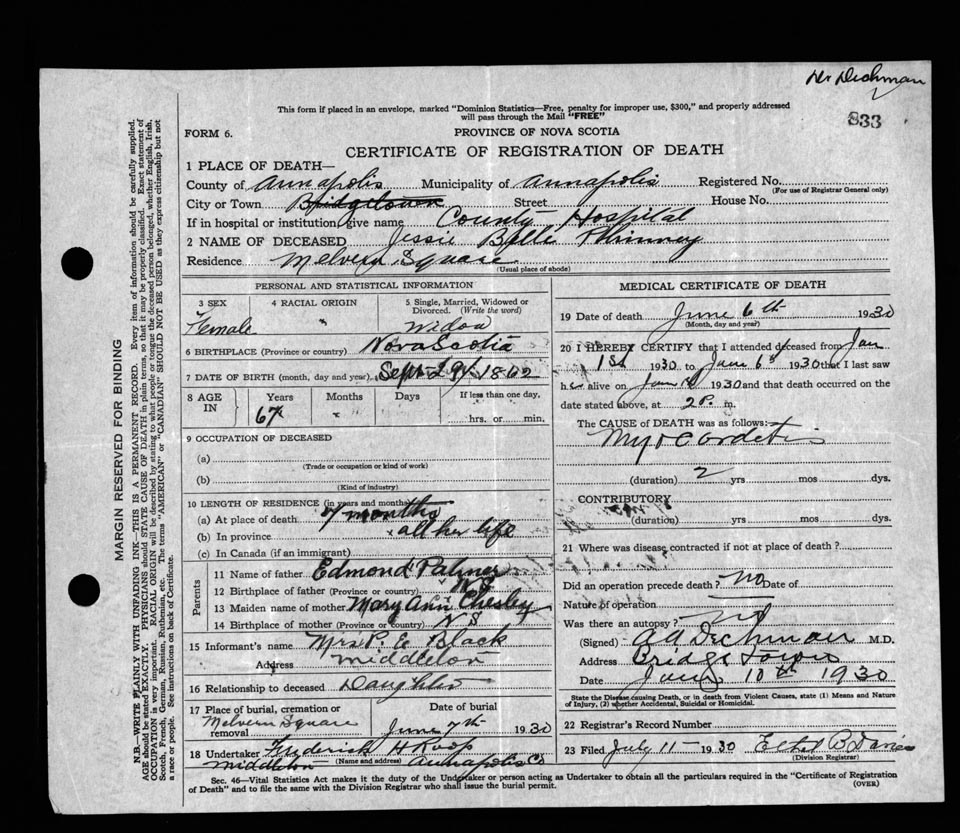 Dr Dechman
833
This form if placed in an envelope, marked "Dominion Statistics—Free, penalty for improper use, $300," and properly addressed
will pass through the Mail "FREE"
FORM 6.
PROVINCE OF NOVA SCOTIA
CERTIFICATE OF REGISTRATION OF DEATH
1 PLACE OF DEATH—
County of Annapolis Municipality of Annapolis Registered No.
(For use of Registrar General only)
City or Town Bridgetown Street House No.
If in hospital or institution, give name County Hospital
2 NAME OF DECEASED Jessie Belle Phinney
Residence Melvern Square
(Usual place of abode)
PERSONAL AND STATISTICAL INFORMATION
3 SEX 4 RACIAL ORIGIN 5 Single, Married, Widowed or
Divorced. (Write the word)
Female " Widow
6 BIRTHPLACE (Province or country) Nova Scotia
7 DATE OF BIRTH (month, day and year) Sept 29 1862
8 AGE IN Years Months Days If less than one day,
67 hrs. or min.
9 OCCUPATION OF DECEASED
(a)
(Trade or occupation or kind of work)
(b)
(Kind of industry)
10 LENGTH OF RESIDENCE (in years and months)
(a) At place of death months
(b) In province all her life
(c) In Canada (if an immigrant)
Parents
11 Name of father Edmond Palmer
12 Birthplace of father (Province or country) N.S
13 Maiden name of mother Mary Ann Chesley
14 Birthplace of mother (Province or country) N S
15 Informant's name Mrs P. E Black
Address Middleton
16 Relationship to deceased Daughter
17 Place of burial, cremation or
removal Melvern Square
Date of burial
June 7th 1930
18 Undertaker Frederick H Roop
(Name and address)
Middleton Annapolis Co
MEDICAL CERTIFICATE OF DEATH
19 Date of death June 6th 1930
(Month, day and year)
20 I HEREBY CERTIFY that I attended deceased from Jan
1st 1930 to June 6th 1930 that I last saw
h alive on June 1930 and that death occurred on
date stated above, at 2 P. m.
The CAUSE OF DEATH was as follows:
Myocardetis
(duration) 2 yrs mos dys.
CONTRIBUTORY
(duration) yrs mos dys.
21 Where was disease contracted if not at place of death?
Did an operation precede death? no Date of
Nature of operation
Was there an autopsy? no
(Signed) A A Dechman M.D.
Address Bridgetown
Date June 10th 1930
State the Disease causing Death, or in death from Violent Causes, state (1) Means and Nature
of Injury, (2) whether Accidental, Suicidal or Homicidal.
22 Registrar's Record Number
23 Filed July 11 - 1930 Ethel B Davies
(Division Registrar)
Sec. 46—Vital Statistics Act makes it the duty of the Undertaker or person acting as Undertaker to obtain all the particulars required in the "Certificate of Registration
of Death" and to file the same with the Division Registrar who shall issue the burial permit.
(OVER)
MARGIN RESERVED FOR BINDING
N.B.—WRITE PLAINLY WITH UNFADING INK—THIS IS A PERMANENT RECORD. Every item of information should be carefully supplied.
AGE should be stated EXACTLY. PHYSICIANS should STATE CAUSE OF DEATH in plain terms, so that it may be properly classified. Exact statement of
OCCUPATION is very important. RACIAL ORIGIN will be described by stating to what people or tongue the deceased person belonged, whether English, Irish,
Scotch, French, German, Russian, Ruthenian, etc. The terms "AMERICAN" or "CANADIAN" SHOULD NOT BE USED as they express citizenship but not
a race or people. See instructions on back of Certificate.